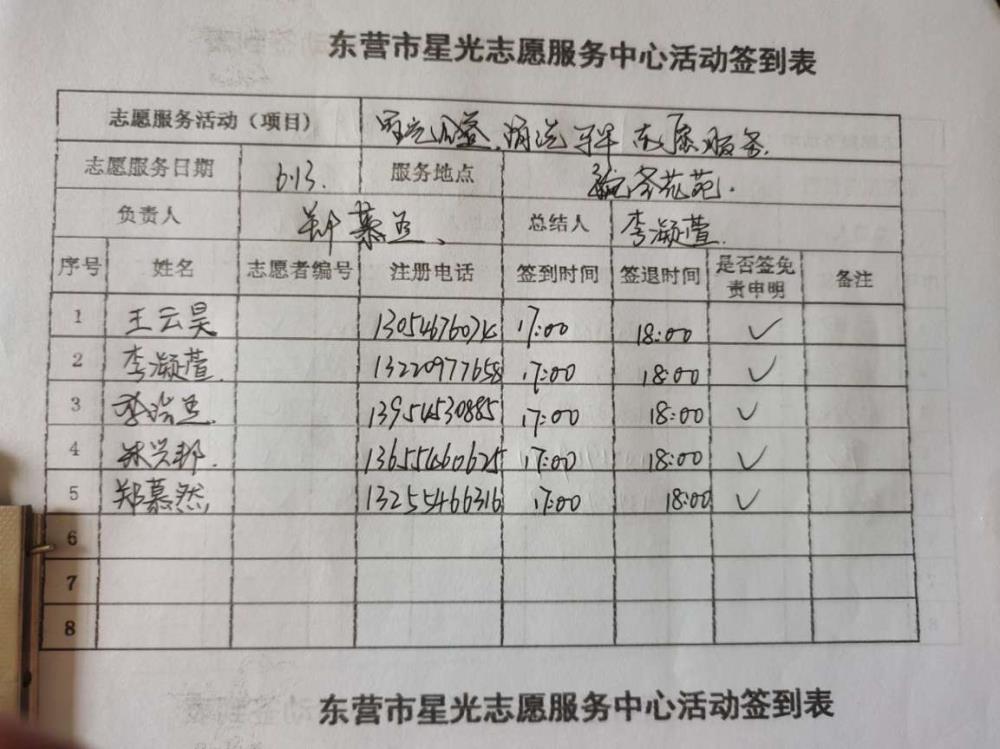 东营市星光志愿服务中心活动签到表
志愿服务活动（项目） 清洗 志愿服务.
志愿服务日期 6.13. 服务地点
负责人 郑慕 总结人 李凝萱
序号 姓名 志愿者编号 注册电话 签到时间 签退时间 是否签免责申明 备注
1 王云昊 17:00 18:00 ✓
2 李凝萱 13220977658 17:00 18:00 ✓
3 13954530885 17:00 18:00 ✓
4 兴邦 13655460625 17:00 18:00 ✓
5 郑慕然 13255466316 17:00 18:00 ✓
6
7
8
东营市星光志愿服务中心活动签到表